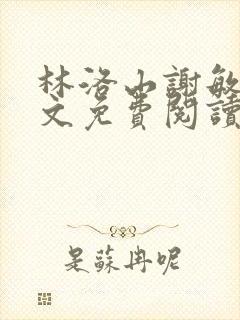 林洛山謝敏
文免費閱讀
是蘇冉呢